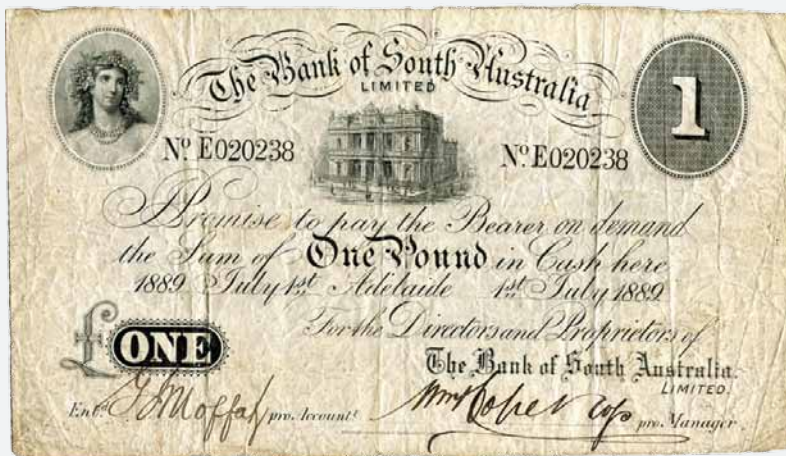 The Bank of South Australia
LIMITED
1
Nº E020238
Nº E020238
Promise to pay the Bearer on demand
the Sum of One Pound in Cash here
1889 July 1st Adelaide 1st July 1889
For the Directors and Proprietors of
£ONE
The Bank of South Australia.
LIMITED.
Entd. Moffat pro Accountt.
pro Manager